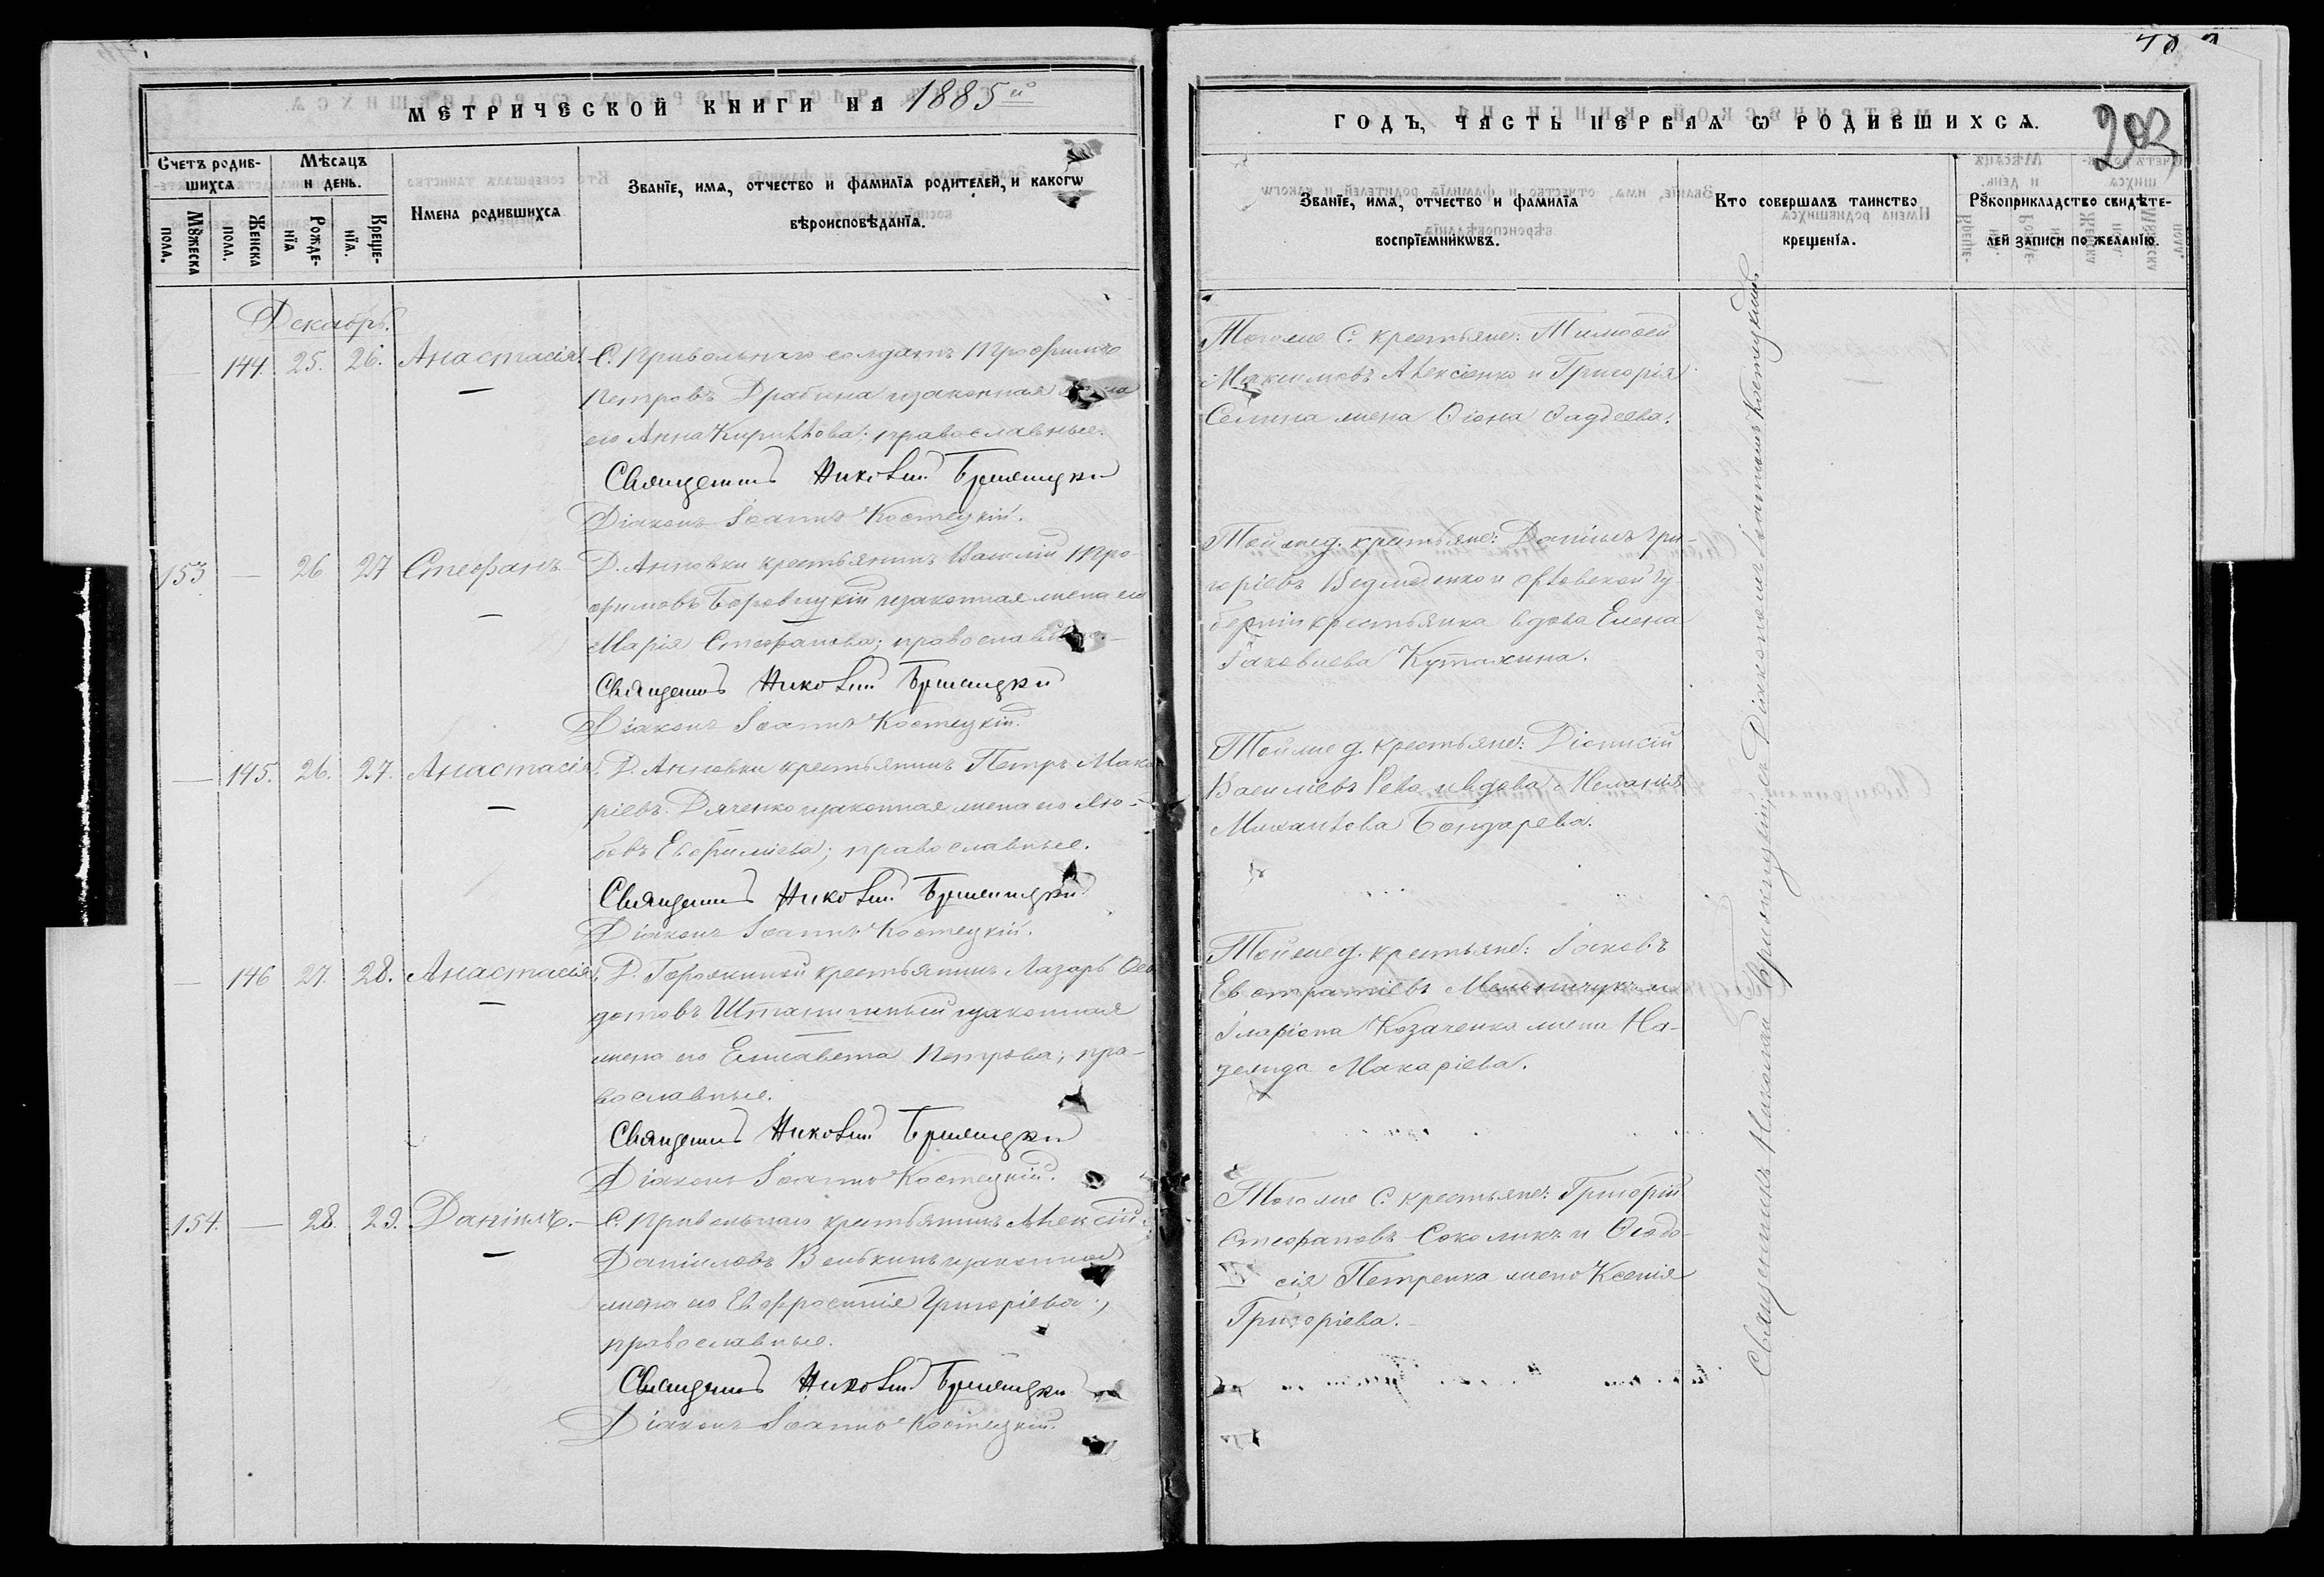 МЕТРИЧЕСКОЙ КНИГИ НА 1885й
Счетъ родив-
шихся
Мѣсяцъ
и день.
Мꙋжеска
пола.
Женска
пола.
Рожде-
нїя
Креще-
нїя.
Имена родившихся
Званїе, имя, отчество и фамилїя родителей, и какогѡ
вѣроисповѣданїя.
Декабрь.
144. 25. 26. Анастасія. С. Привольнаго солдатъ Трофимъ
Петровъ Драбина и законная жена
его Анна Кириллова; православные.
Священникъ Николай
Діаконъ Іоаннъ Костецкій.
153 — 26 27 Стефанъ Д. Анновки крестьянинъ Василій Тро-
фимовъ Боровицкій и законная жена его
Марія Стефанова; православные.
Священникъ Николай
Діаконъ Іоаннъ Костецкій.
— 145. 26. 27. Анастасія. Д. Анновки крестьянинъ Петръ Мака-
ріевъ Дяченко и законная жена его Лю-
бовь Евфиміева; православные.
Священникъ Николай
Діаконъ Іоаннъ Костецкій.
— 146 27. 28. Анастасія. Д. крестьянинъ Лазарь Ѳео-
дотовъ и законная
жена его Елисавета Петрова; пра-
вославные.
Священникъ Николай
Діаконъ Іоаннъ Костецкій.
154. — 28. 29. Даніилъ. С. Привольнаго крестьянинъ Алексій
Даніиловъ и законная
жена его Евфросинія Григоріева;
православные.
Священникъ Николай
Діаконъ Іоаннъ Костецкій.
203
ГОДЪ, ЧАСТЬ ПЕРВАЯ Ѡ РОДИВШИХСЯ.
Званїе, имя, отчество и фамилїя
воспрїемникѡвъ.
Кто совершалъ таинство
крещенїя.
Рꙋкоприкладство свидѣте-
лей записи по желанїю.
Того же С. крестьяне: Тимоѳей
Максимовъ Алексіенко и Григорія
Селина жена Ѳіона Ѳаддеева.
Той же д. крестьяне: Даніилъ Гри-
горіевъ Ведмеденко и Орловской гу-
берніи крестьянка вдова Елена
Іаковлева Кутахина.
Той же д. крестьяне: Діонисій
Василіевъ Рева и вдова Меланія
Михаилова Бондарева.
Той же д. крестьяне: Іаковъ
Евстратіевъ Мельничукъ и
Іларіона Козаченка жена На-
дежда Макаріева.
Того же С. крестьяне: Григорій
Стефановъ Соколикъ и Ѳеодо-
сія Петренка жена Ксенія
Григоріева.
Священникъ Николай съ Діакономъ Іоанномъ Костецкимъ.